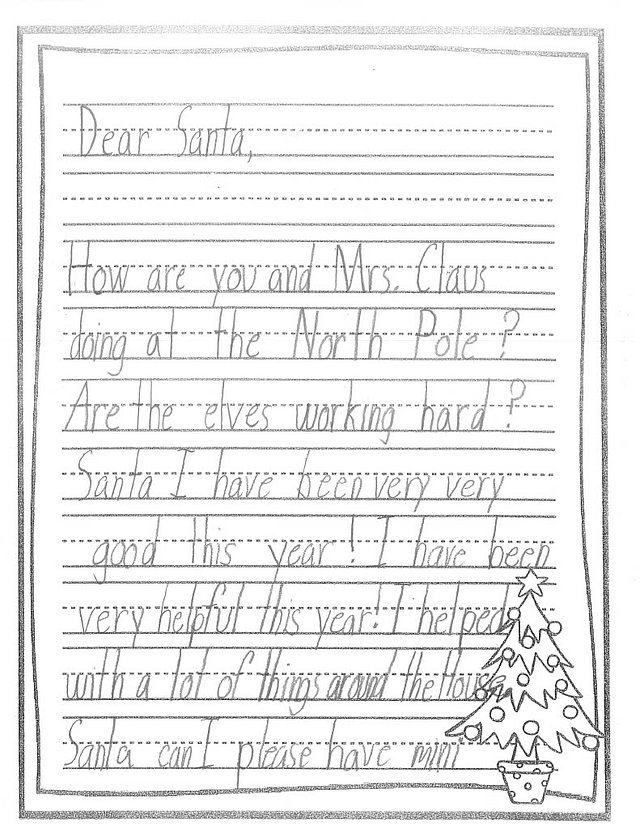 Dear Santa,
How are you and Mrs. Claus
doing at the North Pole ?
Are the elves working hard ?
Santa I have been very very
good this year ! I have been
very helpful this year! I helped
with a lot of things around the House
Santa can I please have mini